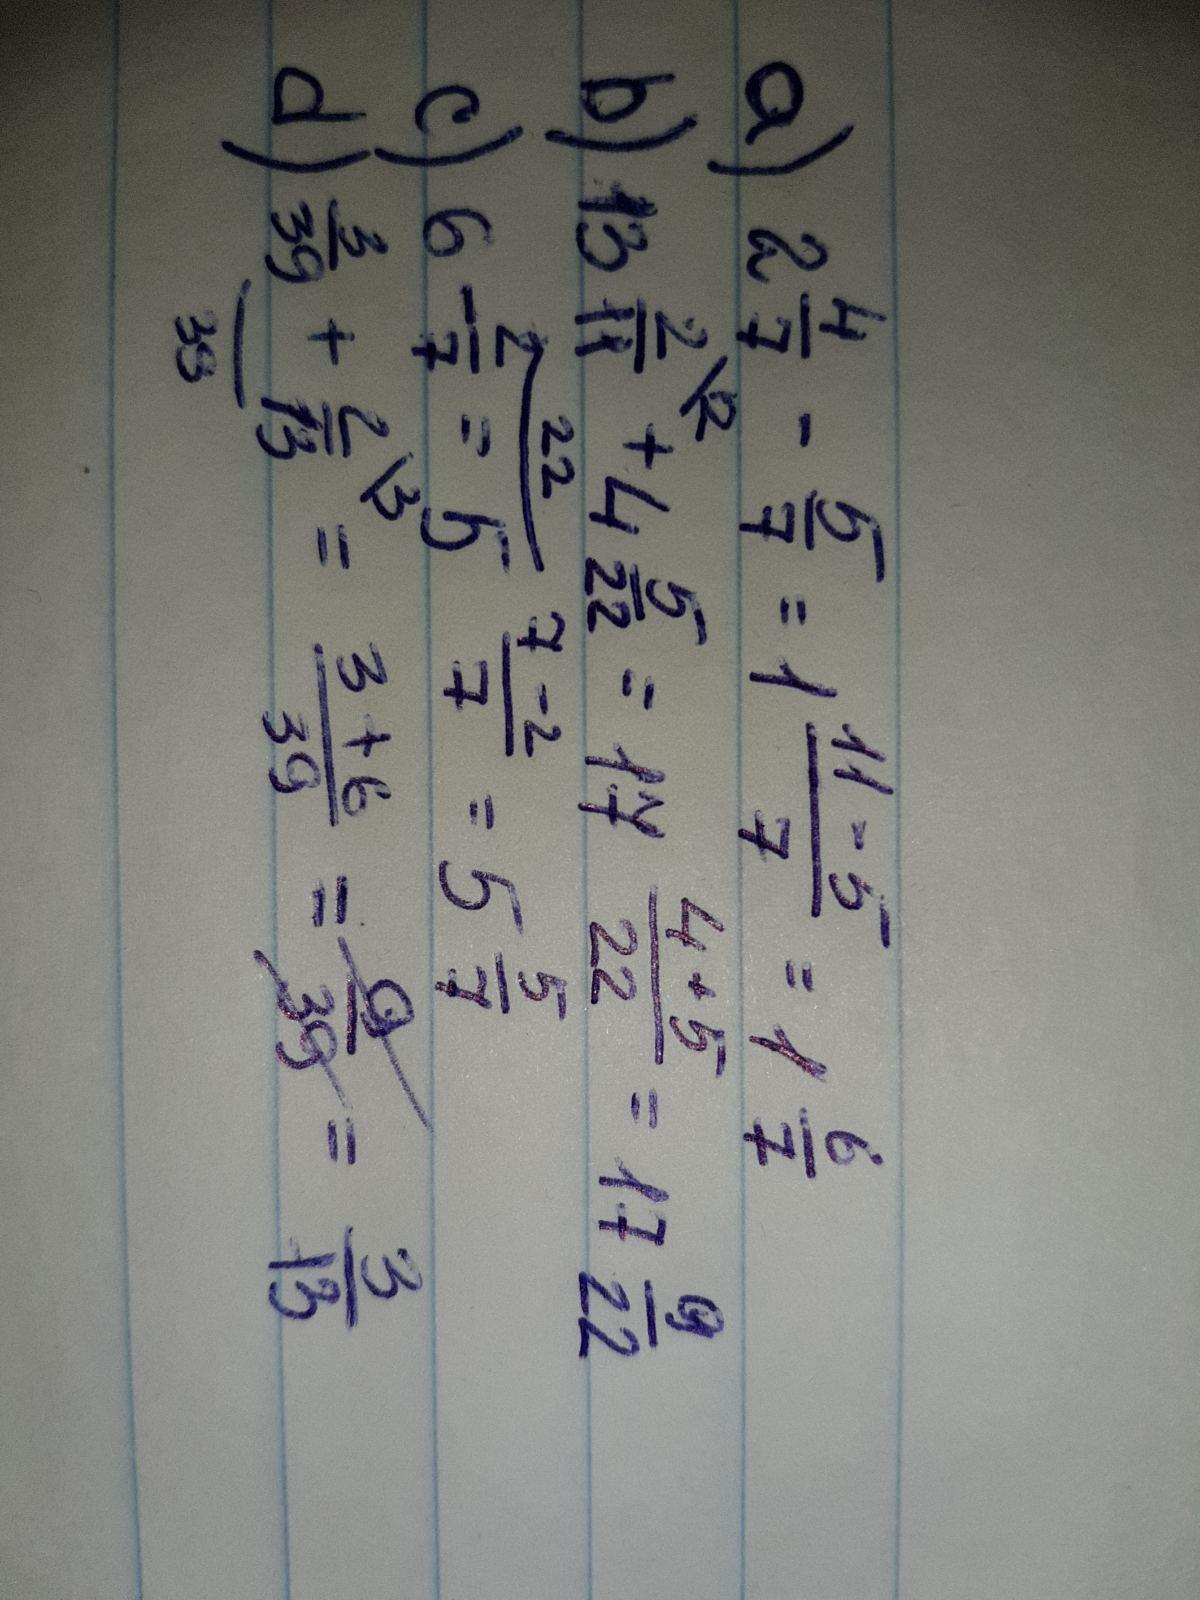 a) 2 4/7 - 5/7 = 1 (11-5)/7 = 1 6/7
b) 13 2/11 \2 + 4 5/22 = 17 (4+5)/22 = 17 9/22
22
c) 6 - 2/7 = 5 (7-2)/7 = 5 5/7
d) 3/39 + 2/13 \3 = (3+6)/39 = 9/39 = 3/13
39